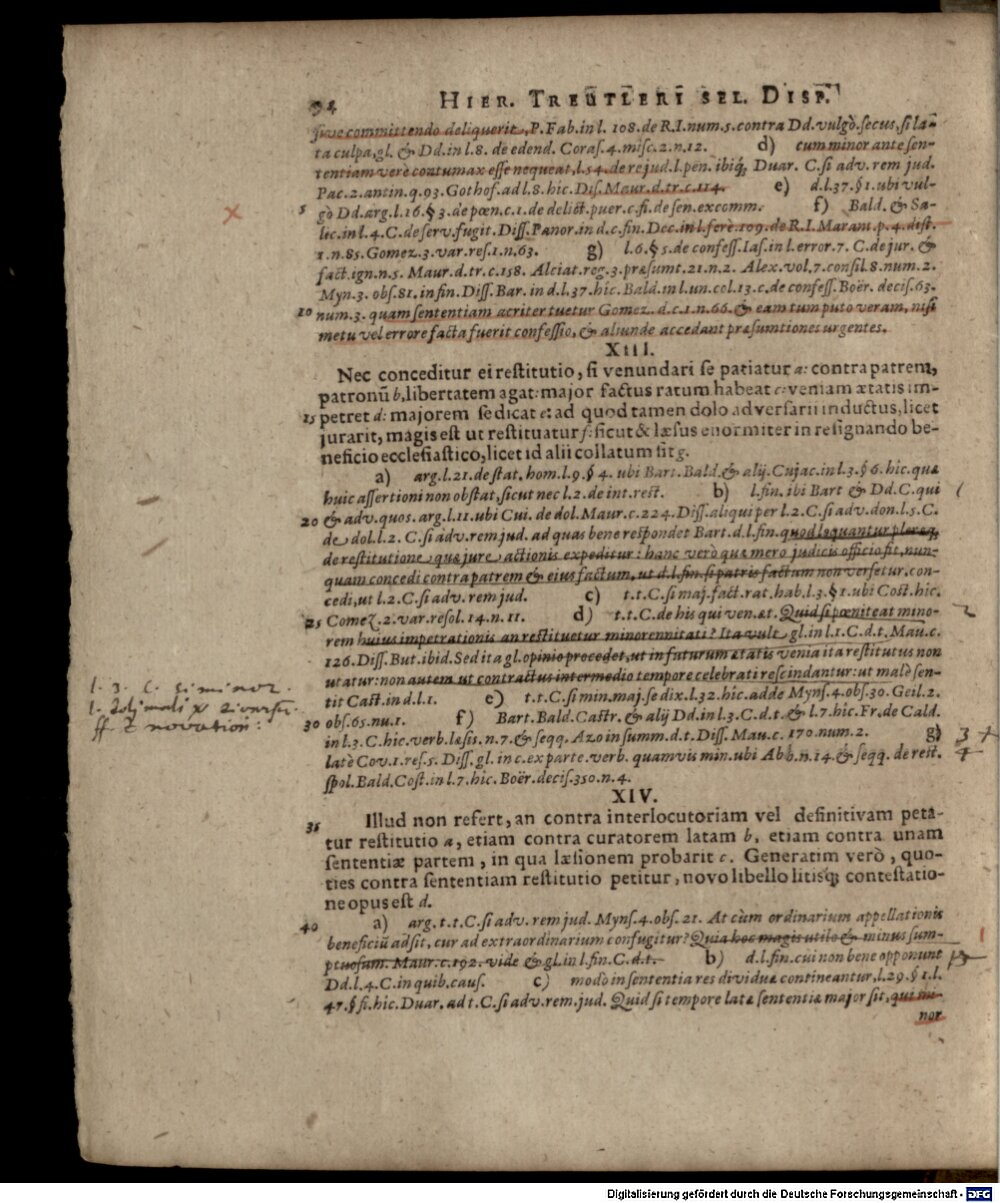 94 HIER. TREUTLERI SEL. DISP.
sive committendo deliquerit, P. Fab. in l. 108. de R.I. num. 5. contra Dd. vulgò. secus, si la-
ta culpa, gl. & Dd. in l. 8. de edend. Coras. 4. misc. 2. n. 12. d) cum minor ante sen-
tentiam verè contumax esse nequeat, l. 54. de re jud. l. pen. ibiq; Duar. C. si adv. rem jud.
Pac. 2. antin. q. 93. Gothof. ad l. 8. hic. Dis. Maur. d. tr. c. 114. e) d. l. 37. § 1. ubi vul-
5 gò Dd. arg. l. 16. § 3. de pœn. c. 1. de delict. puer. c. fi. de sen. excomm. f) Bald. & Sa-
lic. in l. 4. C. de serv. fugit. Diss. Panor. in d. c. fin. Dec. in l. ferè. 109. de R.I. Marant. p. 4. dist.
1. n. 85. Gomez. 3. var. res. 1. n. 63. g) l. 6. § 5. de confess. Ias. in l. error. 7. C. de jur. &
fact. ign. n. 5. Maur. d. tr. c. 158. Alciat. reg. 3. præsumt. 21. n. 2. Alex. vol. 7. consil. 8. num. 2.
Myn. 3. obs. 81. in fin. Diss. Bar. in d. l. 37. hic. Bald. in l. un. col. 13. c. de confess. Boër. decis. 63.
10 num. 3. quam sententiam acriter tuetur Gomez. d. c. 1. n. 66. & eam tum puto veram, nisi
metu vel errore facta fuerit confessio, & aliunde accedant præsumtiones urgentes.
XIII.
Nec conceditur ei restitutio, si venundari se patiatur a: contra patrem,
patronū b, libertatem agat: major factus ratum habeat c: veniam ætatis im-
15 petret d: majorem se dicat e: ad quod tamen dolo adversarii inductus, licet
jurarit, magis est ut restituatur f: sicut & læsus enormiter in resignando be-
neficio ecclesiastico, licet id alii collatum sit g.
a) arg. l. 21. de stat. hom. l. 9. § 4. ubi Bart. Bald. & alij. Cujac. in l. 3. § 6. hic. quæ
huic assertioni non obstat, sicut nec l. 2. de int. rest. b) l. fin. ibi Bart & Dd. C. qui
20 & adv. quos. arg. l. 11. ubi Cui. de dol. Maur. c. 224. Diss. aliqui per l. 2. C. si adv. don. l. 5. C.
de dol. l. 2. C. si adv. rem jud. ad quas bene respondet Bart. d. l. fin. quod loquantur pleræq;
de restitutione, quæ jure actionis expeditur: hanc verò quæ mero judicis officio fit, nun-
quam concedi contra patrem & eius factum, ut d. l. fin. si patris factum non versetur. con-
cedi, ut l. 2. C. si adv. rem jud. c) t. t. C. si maj. fact. rat. hab. l. 3. § 1. ubi Cost. hic.
25 Comez. 2. var. resol. 14. n. 11. d) t. t. C. de his qui ven. æt. Quid si pœniteat mino-
rem huius impetrationis an restituetur minorennitati? Ita vult gl. in l. 1. C. d. t. Mau. c.
126. Diss. But. ibid. Sed ita gl. opinio procedet, ut in futurum ætatis venia ita restitutus non
utatur: non autem ut contractus intermedio tempore celebrati rescindantur: ut malè sen-
tit Cast. in d. l. 1. e) t. t. C. si min. maj. se dix. l. 32. hic. adde Myns. 4. obs. 30. Geil. 2.
30 obs. 65. nu. 1. f) Bart. Bald. Castr. & alij Dd. in l. 3. C. d. t. & l. 7. hic. Fr. de Cald.
in l. 3. C. hic. verb. læsis. n. 7. & seqq. Azo in summ. d. t. Diss. Mau. c. 170. num. 2. g)
latè Cov. 1. res. 5. Diss. gl. in c. ex parte. verb. quamvis min. ubi Abb. n. 14. & seqq. de rest.
spol. Bald. Cost. in l. 7. hic. Boër. decis. 350. n. 4.
XIV.
35 Illud non refert, an contra interlocutoriam vel definitivam peta-
tur restitutio a, etiam contra curatorem latam b, etiam contra unam
sententiæ partem, in qua læsionem probarit c. Generatim verò, quo-
ties contra sententiam restitutio petitur, novo libello litisq; contestatio-
ne opus est d.
40 a) arg. t. t. C. si adv. rem jud. Myns. 4. obs. 21. At cùm ordinarium appellationis
beneficiū adsit, cur ad extraordinarium confugitur? Quia hoc magis utile & minus sum-
ptuosum. Maur. c. 192. vide & gl. in l. fin. C. d. t. b) d. l. fin. cui non bene opponunt
Dd. l. 4. C. in quib. caus. c) modò in sententia res dividuæ contineantur, l. 29. § 1. l.
47. § fi. hic. Duar. ad t. C. si adv. rem. jud. Quid si tempore latæ sententiæ major sit, qui mi-
nor
l. 3. C. si minor.
ff. novation:
Digitalisierung gefördert durch die Deutsche Forschungsgemeinschaft - DFG